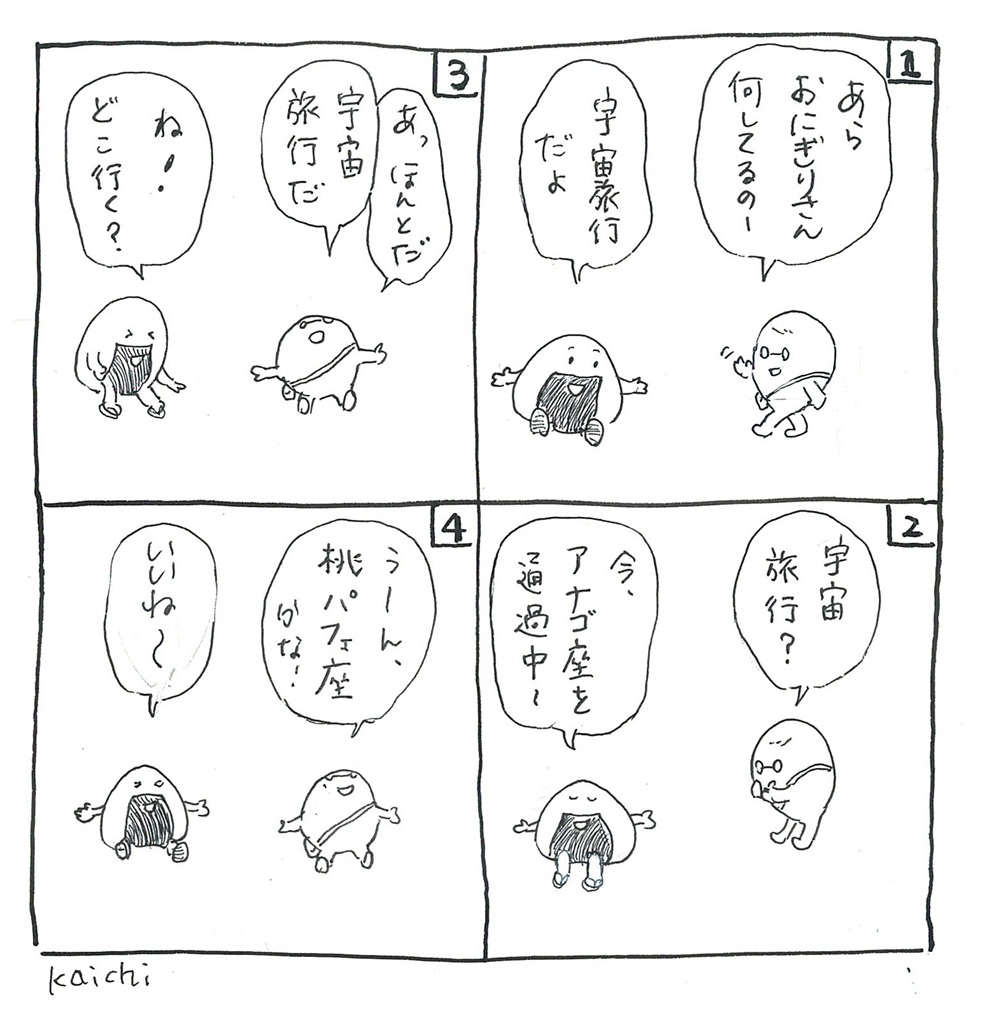 1
あら
おにぎりさん
何してるのー
宇宙旅行
だよ
2
宇宙
旅行?
今、
アナゴ座を
通過中~
3
あっほんとだ
宇宙
旅行だ
ね!
どこ行く?
4
うーん、
桃パフェ座
かな!
いいね~
kaichi